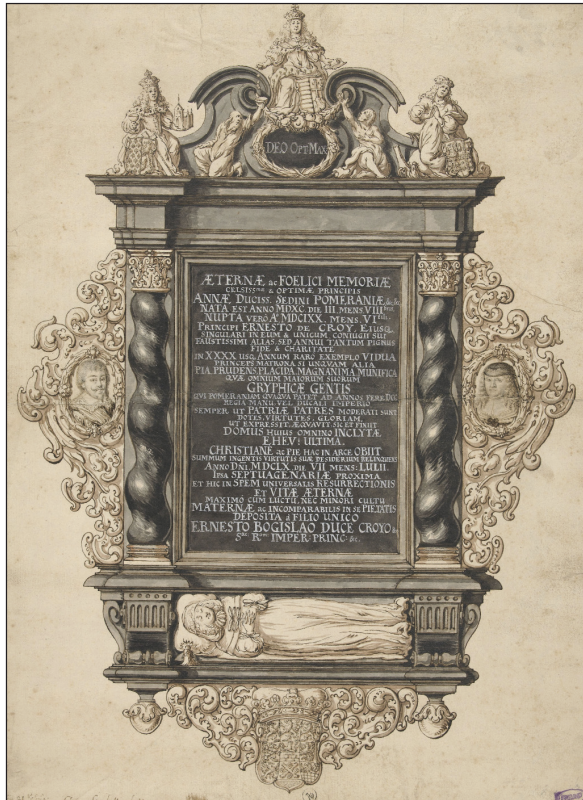 DEO OPT MAX
ÆTERNÆ ac FOELICI MEMORIÆ
CELSISS.mæ & OPTIMÆ PRINCIPIS
ANNÆ DUCISS. SEDINI POMERANIÆ &c.
NATA EST ANNO MDXC DIE III. MENS. VIII
NUPTA VERO Aº MDCIXX. MENS. VI
PRINCIPI ERNESTO DE CROY. EIUSQ.
SINGULARI IN EUM & UNICUM CONIUGII SUI
FAUSTISSIMI ALIAS. SED ANNUI TANTUM PIGNUS
FIDE & CHARITATE
IN XXXX USQ. ANNUM RARO EXEMPLO VIDUA
PRINCEPS MATRONA SI UNQUAM ALIA
PIA, PRUDENS, PLACIDA, MAGNANIMA, MUNIFICA
QVÆ OMNIUM MAIORUM SUORUM
GRYPHICÆ GENTIS
QVI POMERANIUM QVAQVA PATET AD ANNOS FERE
REGIA MANU VEL DUCALI IMPERIO
SEMPER UT PATRIÆ PATRES MODERATI SUNT
DOTES, VIRTUTES, GLORIAM,
UT EXPRESSIT, ÆQVAVIT, SIC ET FINIIT
DOMUS HUIUS OMNINO INCLYTÆ
EHEV: ULTIMA.
CHRISTIANE ac PIE HAC IN ARCE OBIIT
SUMMUM INGENTIS VIRTUTIS SUÆ DESIDERIUM RELINQUENS
ANNO DNI. MDCLX. DIE VII MENS: IULII.
IPSA SEPTUAGENARIÆ PROXIMA
ET HIC IN SPEM UNIVERSALIS RESURRECTIONIS
ET VITÆ ÆTERNÆ
MAXIMO CUM LUCTU, NEC MINORI CULTU
MATERNÆ ac INCOMPARABILIS IN SE PIETATIS
DEPOSITA á FILIO UNICO
ERNESTO BOGISLAO DUCE CROYO &
S. R. IMPER: PRINC: &c.